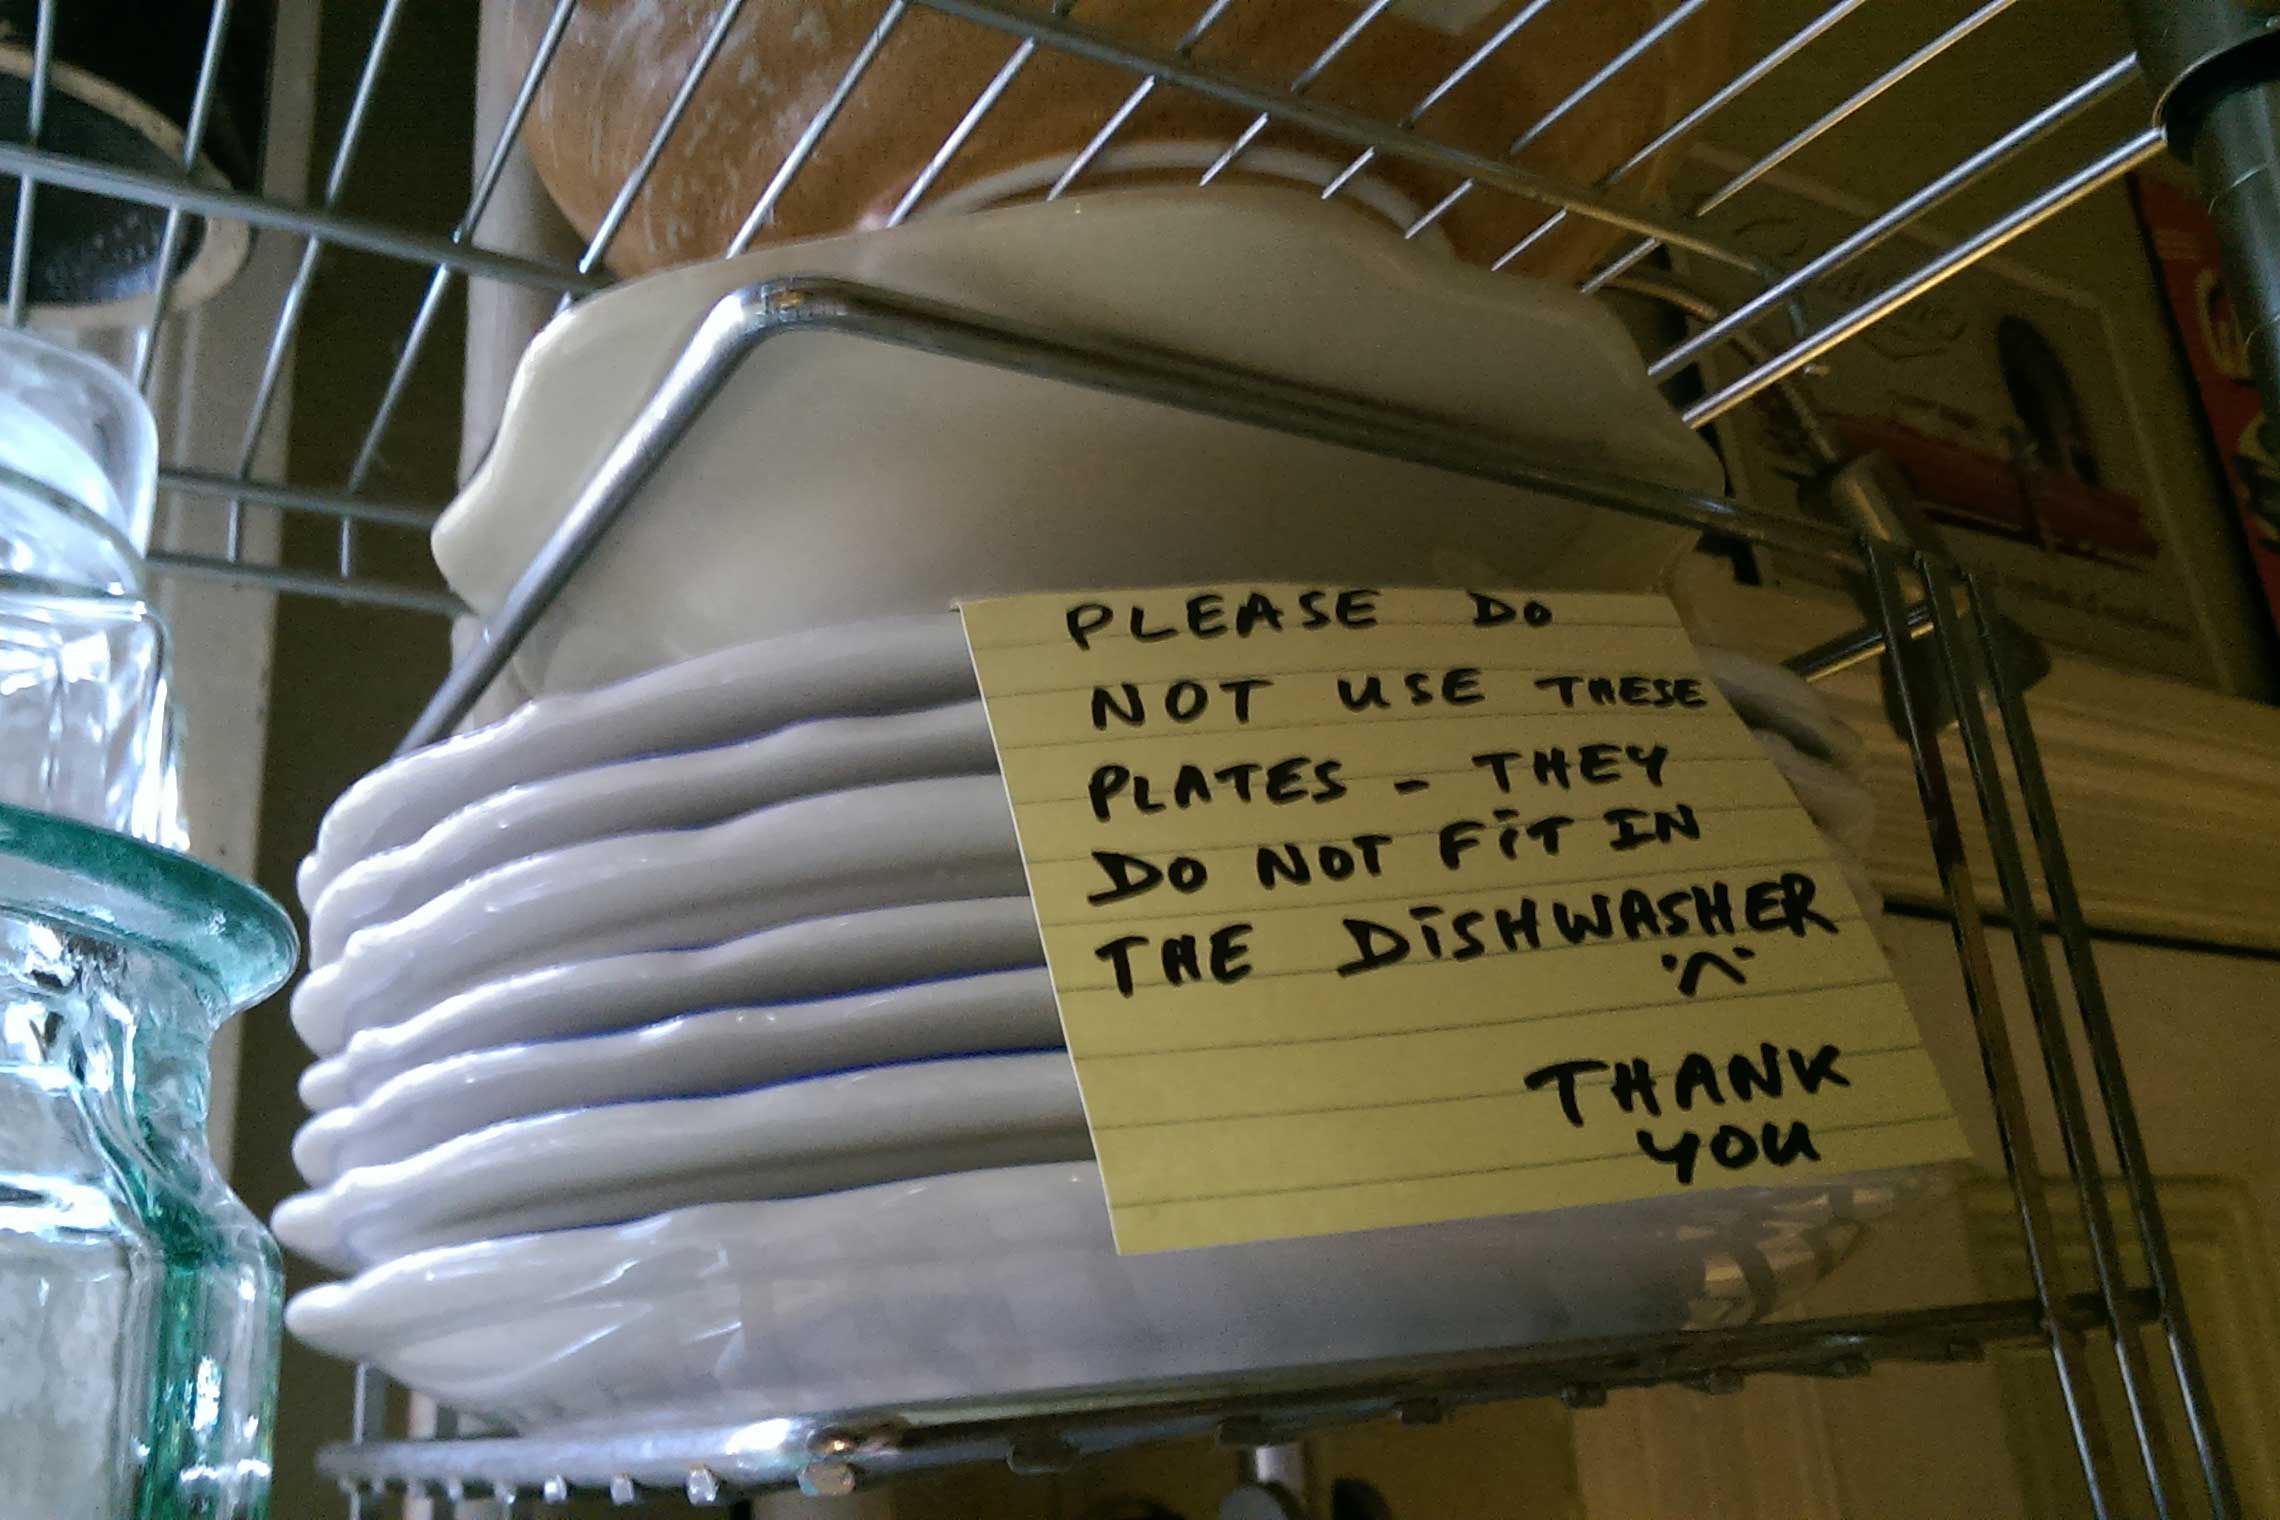 PLEASE DO
NOT USE THESE
PLATES - THEY
DO NOT FiT IN
THE DiSHWASHER
THANK
YOU